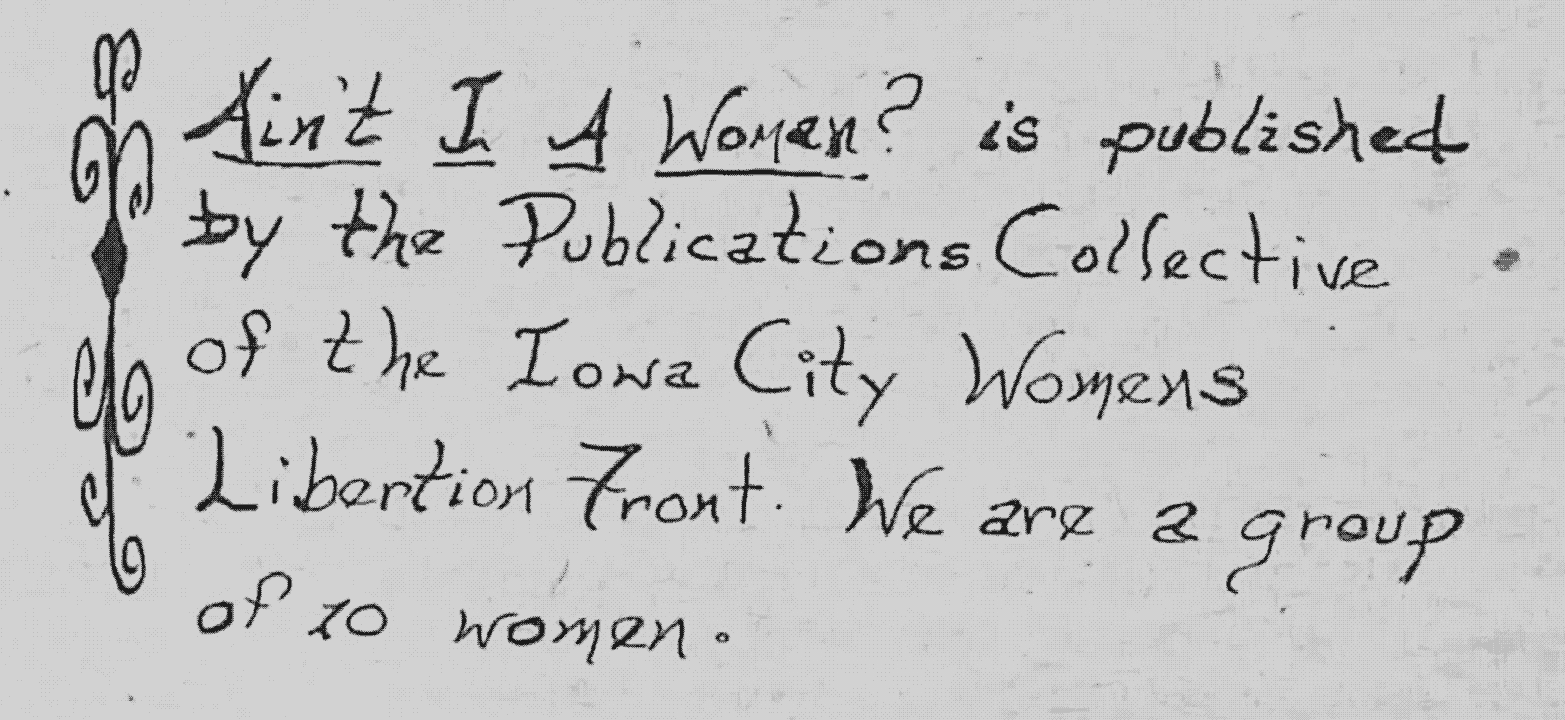 Ain't I A Woman? is published
by the Publications Collective
of the Iowa City Womens
Libertion Front. We are a group
of 10 women.